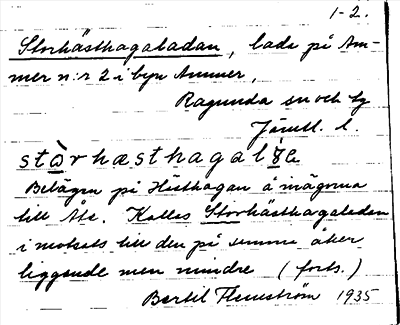 1-2.
Storhästhagaladan, lada på Am-
mer n:r 2 i byn Ammer,
Ragunda sn och tg
Jämtl. l.
stòrhæsthagal
Belägen på Hästhagan å inägorna
till Åte. Kallas Storhästhagaladan
i motsats till den på samma åker
liggande men mindre (forts.)
Bertil Flemström 1935